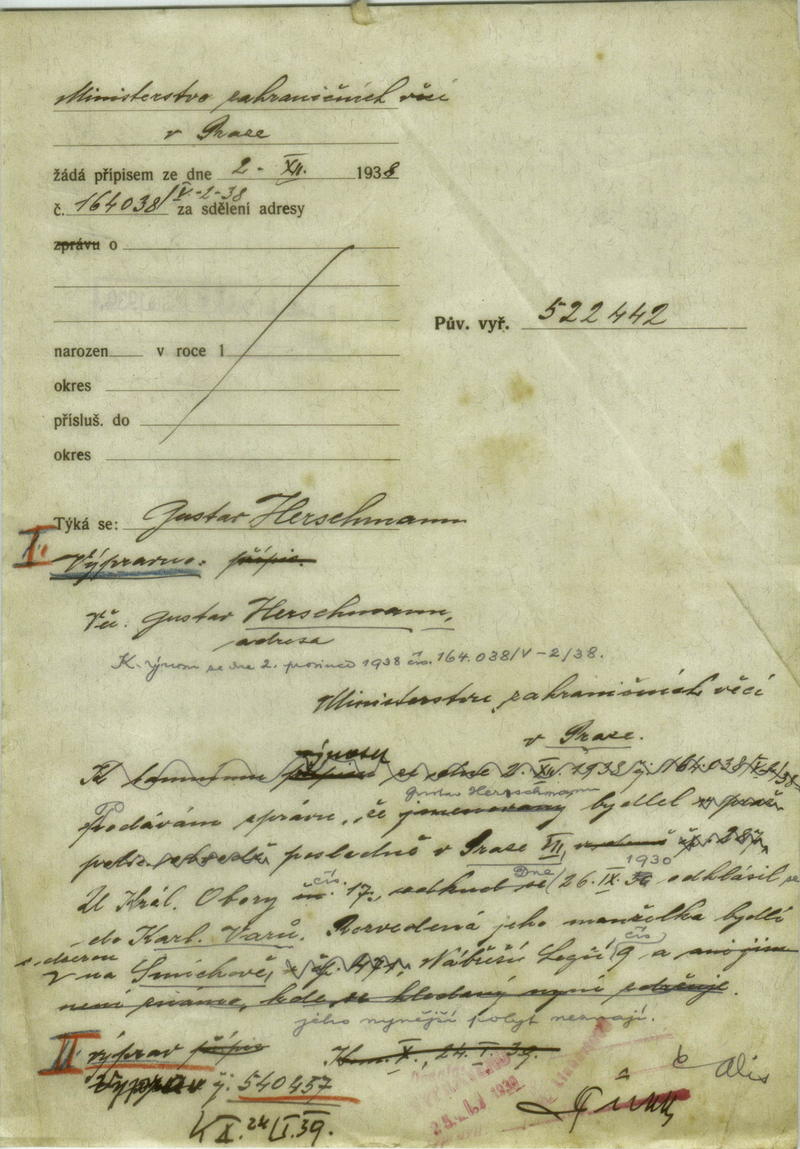 Ministerstvo zahraničních věcí
v Praze
žádá přípisem ze dne 2. XII. 1938
č. 164038/V-2-38 za sdělení adresy
zprávu o
narozen v roce 1
okres
přísluš. do
okres
Pův. vyř. 522442
Týká se: Gustav Herschmann
I.
Výpravno: přípis.
Věc: Gustav Herschmann,
adresa
K výnosu ze dne 2. prosince 1938 čís. 164.038/V-2/38.
Ministerstvu zahraničních věcí
v Praze.
výnosu
K tamnímu přípisu ze dne 2. XII. 1938 čj. 164.038/V-2/38
Gustav Herschmann
Podávám zprávu, že jmenovaný bydlel
posledně v Praze VII, čp. 287,
Dne 1930
U Král. Obory čís. 17, odkud se 26. IX. odhlásil se
do Karl. Varů. Rozvedená jeho manželka bydlí
s dcerou
na Smíchově, čp. 471, Nábřeží Legií čís 9 a
není známo, kde se hledaný nyní zdržuje.
jeho nynější pobyt neznají.
II. výprav přípis
X., 24. I. 39.
čj. 540457
K X. 24/I. 39.